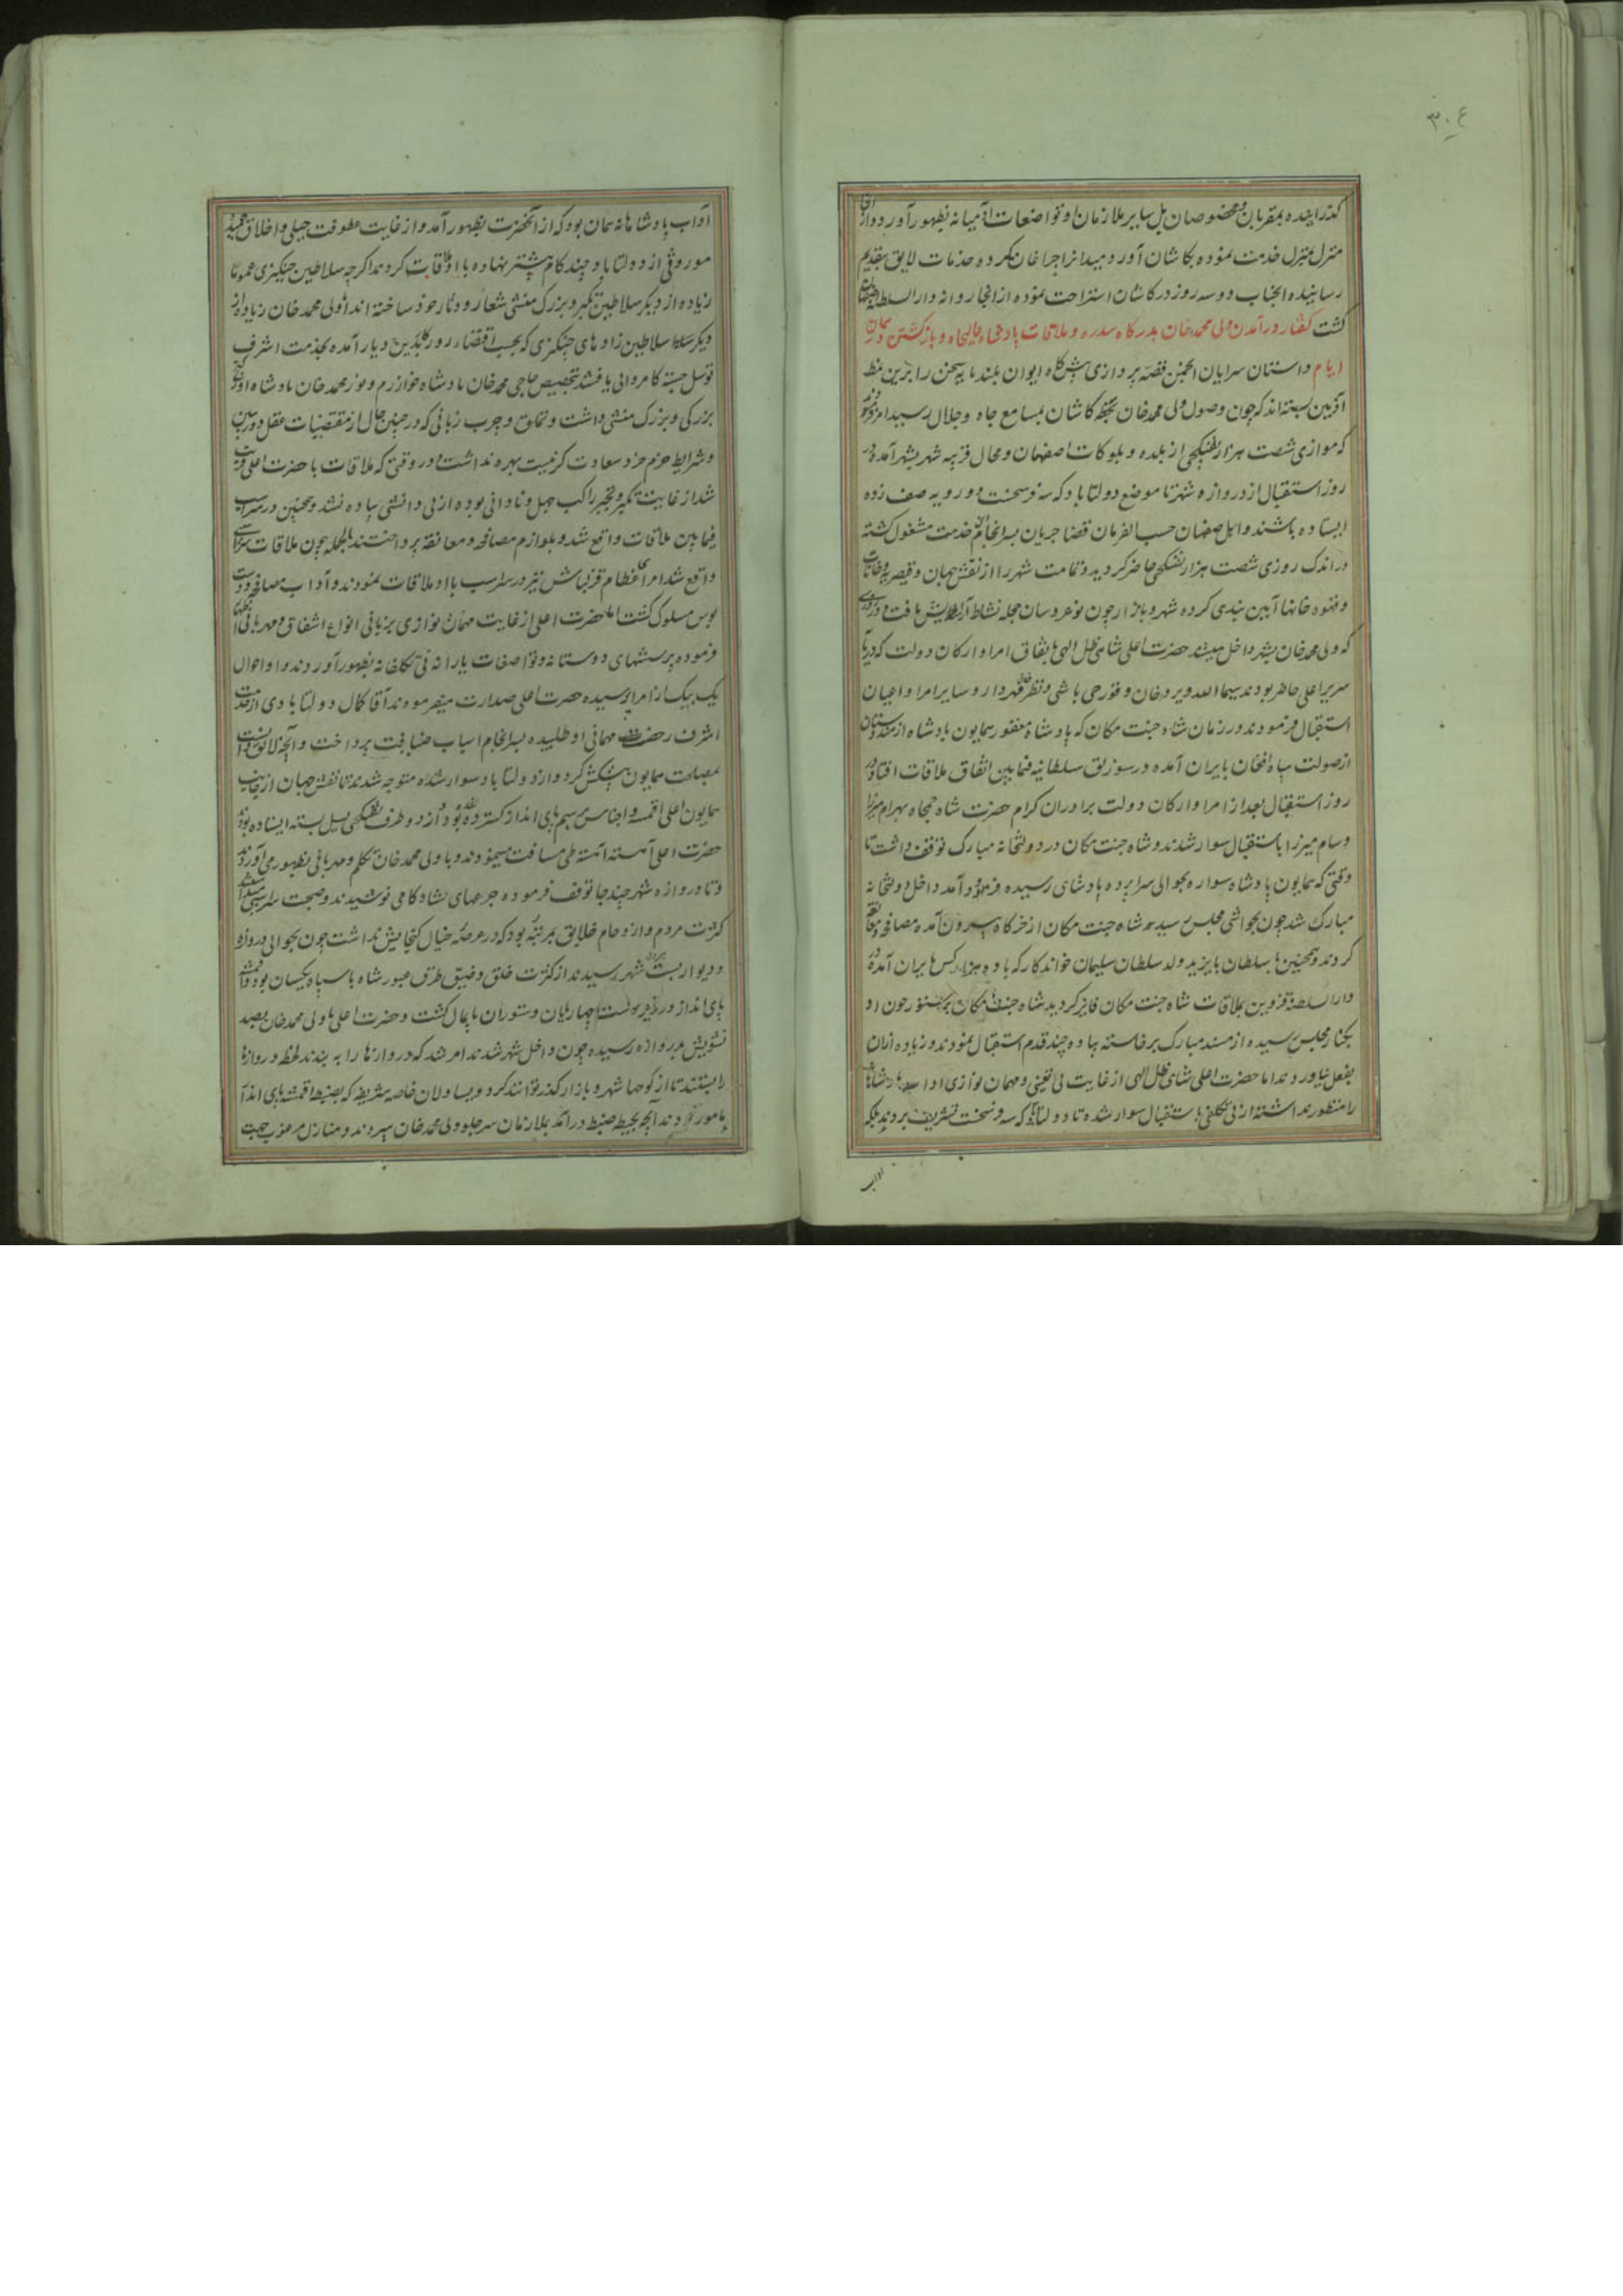 ۳۰۴
کذرانیده بمقربان و مخصوصان بل سایر ملازمان او تواضعات آدمیانه بظهور آورد و از آنجا
منزل بمنزل خدمت نموده بکاشان آورد میدانرا چراغان کرده خدمات لایق بتقدیم
رسانیده انجناب دو سه روز در کاشان استراحت نموده از انجا روانه دار السلطنه اصفهان
کشت کفتار در آمدن ولی محمد خان بدرکاه سدره و ملاقات پادشاه عالیجاه و بازکشتن در همان
ایام داستان سرایان انجمن قصه پردازی پیشکاه ایوان بلند پایه سخن را بدین نمط
آذین بسته اند که چون وصول ولی محمد خان بخطه کاشان بمسامع جاه و جلال رسید امر فرمود
که موازی شصت هزار تفنکچی از بلده و بلوکات اصفهان و محال قریبه شهر بشهر آمده در
روز استقبال از دروازه شهر تا موضع دولتاباد که سه فرسخست دو رویه صف زده
ایستاده باشند و اهل صفهان حسب الفرمان قضا جریان بسرانجام خدمت مشغول کشته
در اندک روزی شصت هزار تفنکچی حاضر کردید و تمامت شهر را از نقش جهان و قیصریه و خانات
و قهوه خانها آیین بندی کرده شهر و بازار چون نوعروسان حجله نشاط آرایش یافت و در روزی
که ولی محمد خان بشهر داخل میشد حضرت اعلی شاهی ظل الهی باتفاق امرا و ارکان دولت که در پای
سریر اعلی حاضر بودند سیما الله ویردیخان و قورچی باشی و مهردار و سایر امرا و اعیان
استقبال فرمودند و در زمان شاه جنت مکان که پادشاه مغفور همایون پادشاه از هندوستان
از صولت سپاه افغان بایران آمده در سورلق سلطانیه فیمابین اتفاق ملاقات افتاد در
روز استقبال بعد از امرا و ارکان دولت برادران کرام حضرت شاه جمجاه بهرام میرزا
و سام میرزا باستقبال سوار شدند و شاه جنت مکان در دولتخانه مبارک توقف داشت تا
وقتی که همایون پادشاه سواره بحوالی سراپرده پادشاهی رسیده فرود آمد داخل دولتخانه
مبارک شد چون بحواشی مجلس رسید شاه جنت مکان از خرکاه بیرون آمده مصافحه و معانقه
کردند و همچنین با سلطان بایزید ولد سلطان سلیمان خواندکار که با ده هزار کس بایران آمده در
دار السلطنه قزوین بملاقات شاه جنت مکان فایز کردید شاه جنت مکان چون او
بکنار مجلس رسیده از مسند مبارک برخاسته پیاده چند قدم استقبال نمودند و زیاده از آن
بفعل نیاوردند اما حضرت اعلی شاهی ظل الهی از غایت بی تعینی و مهمان نوازی آداب پادشاهانه
را منظور نداشته از بی تکلفی باستقبال سوار شده تا دولتاباد که سه فرسخست تشریف بردند بلکه
آداب
آداب پادشاهانه همان بود که از آنحضرت بظهور آمد و از غایت عطوفت جبلی و اخلاق حمیده
موروثی از دولتاباد چند کام پیشتر نهاده با او ملاقات کردند اکرچه سلاطین چنکیزی عموما
زیاده از دیکر سلاطین تکبر و بزرک منشی شعار و دثار خود ساخته اند اما ولی محمد خان زیاده از
دیکر سلاطین زادهای چنکیزی که بحسب اقتضاء روزکار بدین دیار آمده بخدمت اشرف
توسل جسته کامروائی یافتند بتخصیص حاجی محمد خان پادشاه خوارزم و نور محمد خان پادشاه اورکنج
بزرکی و بزرک منشی داشت و تملق و چرب زبانی که در چنین حال از مقتضیات عقل دوربین
و شرایط حزم خرد سعادت کزینست بهره نداشت و در وقتی که ملاقات با حضرت اعلی قریب
شد از غایت تکبر و تجبر راکب جهل و نادانی بوده از بی دانشی پیاده نشد و همچنین در سر اسب
فیمابین ملاقات واقع شد و بلوازم مصافحه و معانقه پرداختند القصه چون ملاقات
واقع شد امرای عظام قزلباش نیز در سر اسب با او ملاقات نمودند و آداب مصافحه و دست
بوس مسلوک کشت حضرت اعلی از غایت مهمان نوازی بزبانی انواع اشفاق و مهربانی اظهار
فرموده پرسشهای دوستانه و تواضعات یارانه بی تکلفانه بظهور آوردند و احوال
یک بیک از امرا پرسیده حضرت اعلی صدارت میفرمودند آقا کمال دولتابادی از خدمت
اشرف رخصت مهمانی او طلبیده بسرانجام اسباب ضیافت پرداخت و آنچه لایق دانست
بمصلحت همایون پیشکش کرد و از دولتاباد سوار شده متوجه شدند تا نقش جهان از جانب
همایون اعلی اقمشه و اجناس برسم پای انداز کسترده بود و از دو طرف تفنکچی یسل بسته ایستاده بودند
حضرت اعلی آهسته آهسته طی مسافت مینمودند و با ولی محمد خان تکلم و مهربانی بظهور می آوردند
و تا دروازه شهر چند جا توقف فرموده جرعهای شادکامی نوشیدند و صحبت
کثرت مردم و ازدحام خلایق بمرتبه بود که در عرصه خیال کنجایش نداشت چون بحوالی دروازه
و دیوار بست شهر رسیدند از کثرت خلق و ضیق طرق عبور شاه با سپاه یکسان بود و اقمشه
پای انداز در زیر دست چهارپایان و ستوران پایمال کشت و حضرت اعلی با ولی محمد خان بصد
تشویش بدروازه رسیده چون داخل شهر شدند امر شد که دروازها را به بندند لحظه دروازها
را بستند تا از کوچها شهر و بازار کذر توانند کرد و یساولان خاصه شریفه که بضبط اقمشه پای انداز
مامور بودند آنچه بحیطه ضبط درآمد بملازمان سر جلو ولی محمد خان سپردند و منازل مرغوب جهت